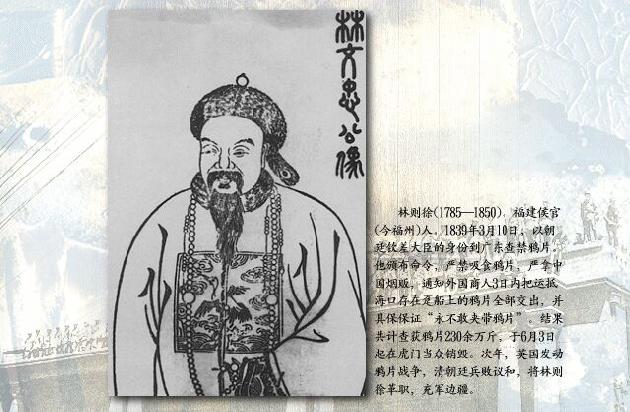 林文忠公像
林则徐(1785—1850)，福建侯官
(今福州)人。1839年3月10日，以朝
廷钦差大臣的身份到广东查禁鸦片，
他颁布命令，严禁吸食鸦片，严拿中
国烟贩，通知外国商人3日内把运抵
海口存在趸船上的鸦片全部交出，并
具保保证“永不敢夹带鸦片”。结果
共计查获鸦片230余万斤，于6月3日
起在虎门当众销毁。次年，英国发动
鸦片战争，清朝廷兵败议和，将林则
徐革职，充军边疆。